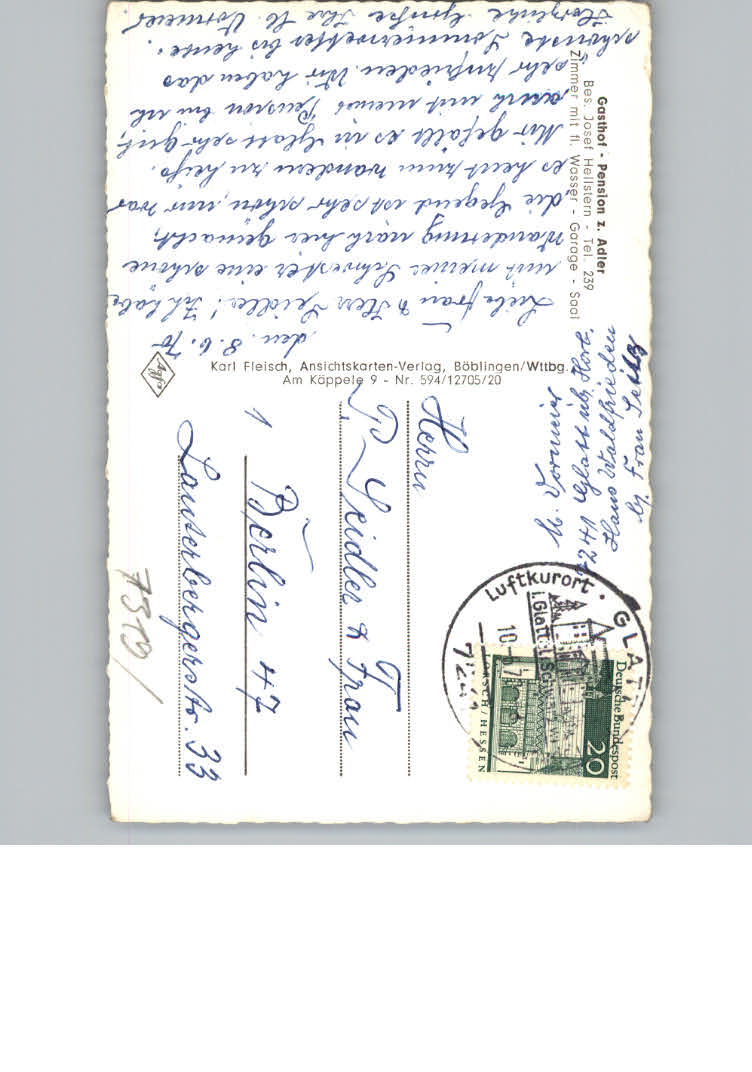 Gasthof - Pension z. Adler
Bes. Josef Hellstern - Tel. 239
Zimmer mit fl. Wasser - Garage - Saal
den 8.6.70
Liebe Frau & Herr Seidler! Ich habe
mit meiner Schwester eine schöne
Wanderung nach hier gemacht,
die Gegend ist sehr schön, nur war
es heut zum wandern zu heiß.
Mir gefällt es in Glatt sehr gut,
auch mit meiner Pension bin ich
sehr zufrieden. Wir haben das
schönste Sommerwetter bis heute.
Herzliche Grüße Ihre M. Vormeier
Karl Fleisch, Ansichtskarten-Verlag, Böblingen/Wttbg.
Am Käppele 9 - Nr. 594/12705/20
Agfa
M. Vormeier
7241 Glatt üb. Horb.
Haus Waldfrieden
bj. Frau Seitz
Luftkurort · GLATT
i. Glatt
10-
7241
Deutsche Bundespost
20
LORSCH/HESSEN
Herrn
P. Seidler & Frau
1 Berlin 47
Lauterbergerstr. 33
7319/